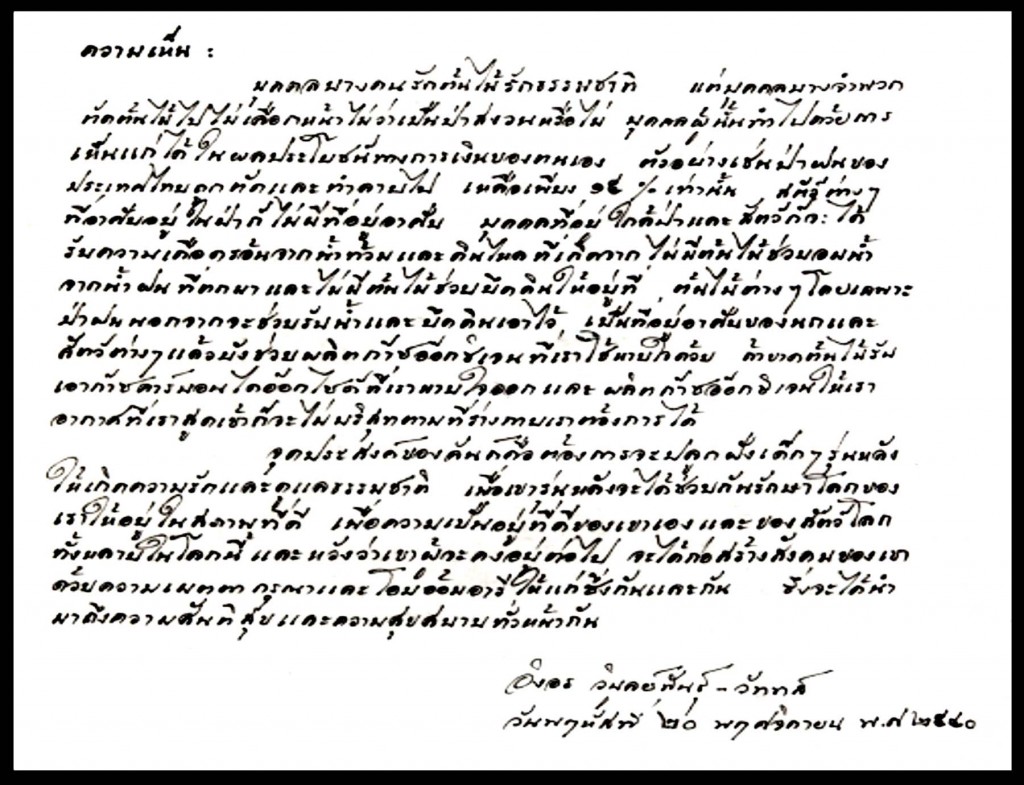 ความเห็น :
บุคคลบางคนรักต้นไม้รักธรรมชาติ แต่บุคคลบางจำพวก
ตัดต้นไม้ไปไม่เลือกหน้าไม่ว่าเป็นป่าสงวนหรือไม่ บุคคลผู้นั้นทำไปด้วยการ
เห็นแก่ได้ในผลประโยชน์ทางการเงินของตนเอง ตัวอย่างเช่นป่าฝนของ
ประเทศไทยถูกตัดและทำลายไป เหลือเพียง ๑๕ % เท่านั้น สัตว์ต่างๆ
ที่อาศัยอยู่ในป่าก็ไม่มีที่อยู่อาศัย บุคคลที่อยู่ใกล้ป่าและสัตว์ก็จะได้
รับความเดือดร้อนจากน้ำท้วมและดินไหลที่เกิดจากไม่มีต้นไม้ช่วยอมน้ำ
จากน้ำฝนที่ตกมาและไม่มีต้นไม้ช่วยยึดดินให้อยู่ที่ ต้นไม้ต่างๆโดยเฉพาะ
ป่าฝนนอกจากจะช่วยรับน้ำและยึดดินเอาไว้ เป็นที่อยู่อาศัยของนกและ
สัตว์ต่างๆแล้วยังช่วยผลิตก๊าซอ๊อกซิเจนที่เราใช้หายใจด้วย ถ้าขาดต้นไม้รับ
เอาก๊าซคาร์บอนไดอ๊อกไซด์ที่เราหายใจออกและผลิตก๊าซอ๊อกซิเจนให้เรา
อากาศที่เราสูดเข้าก็จะไม่บริสุทตามที่ร่างกายเราต้องการได้
จุดประสงค์ของดิฉันก็คือต้องการจะปลูกฝังเด็กๆรุ่นหลัง
ให้เกิดความรักและดูแลธรรมชาติ เพื่อเขารุ่นหลังจะได้ช่วยกันรักษาโลกของ
เราให้อยู่ในสภาพที่ดี เพื่อความเป็นอยู่ที่ดีของเขาเองและของสัตว์โลก
ทั้งหลายในโลกนี้ และหวังว่าเขาผู้จะคงอยู่ต่อไป จะได้ก่อสร้างสังคมของเขา
ด้วยความเมตตา กรุณาและโอบอ้อมอารีให้แก่ซึ่งกันและกัน ซึ่งจะได้นำ
มาถึงความสันติสุขและความสุขสบายทั่วหน้ากัน
อิงอร
วันพฤหัสที่ ๒๐ พฤศจิกายน พ.ศ ๒๕๔๐